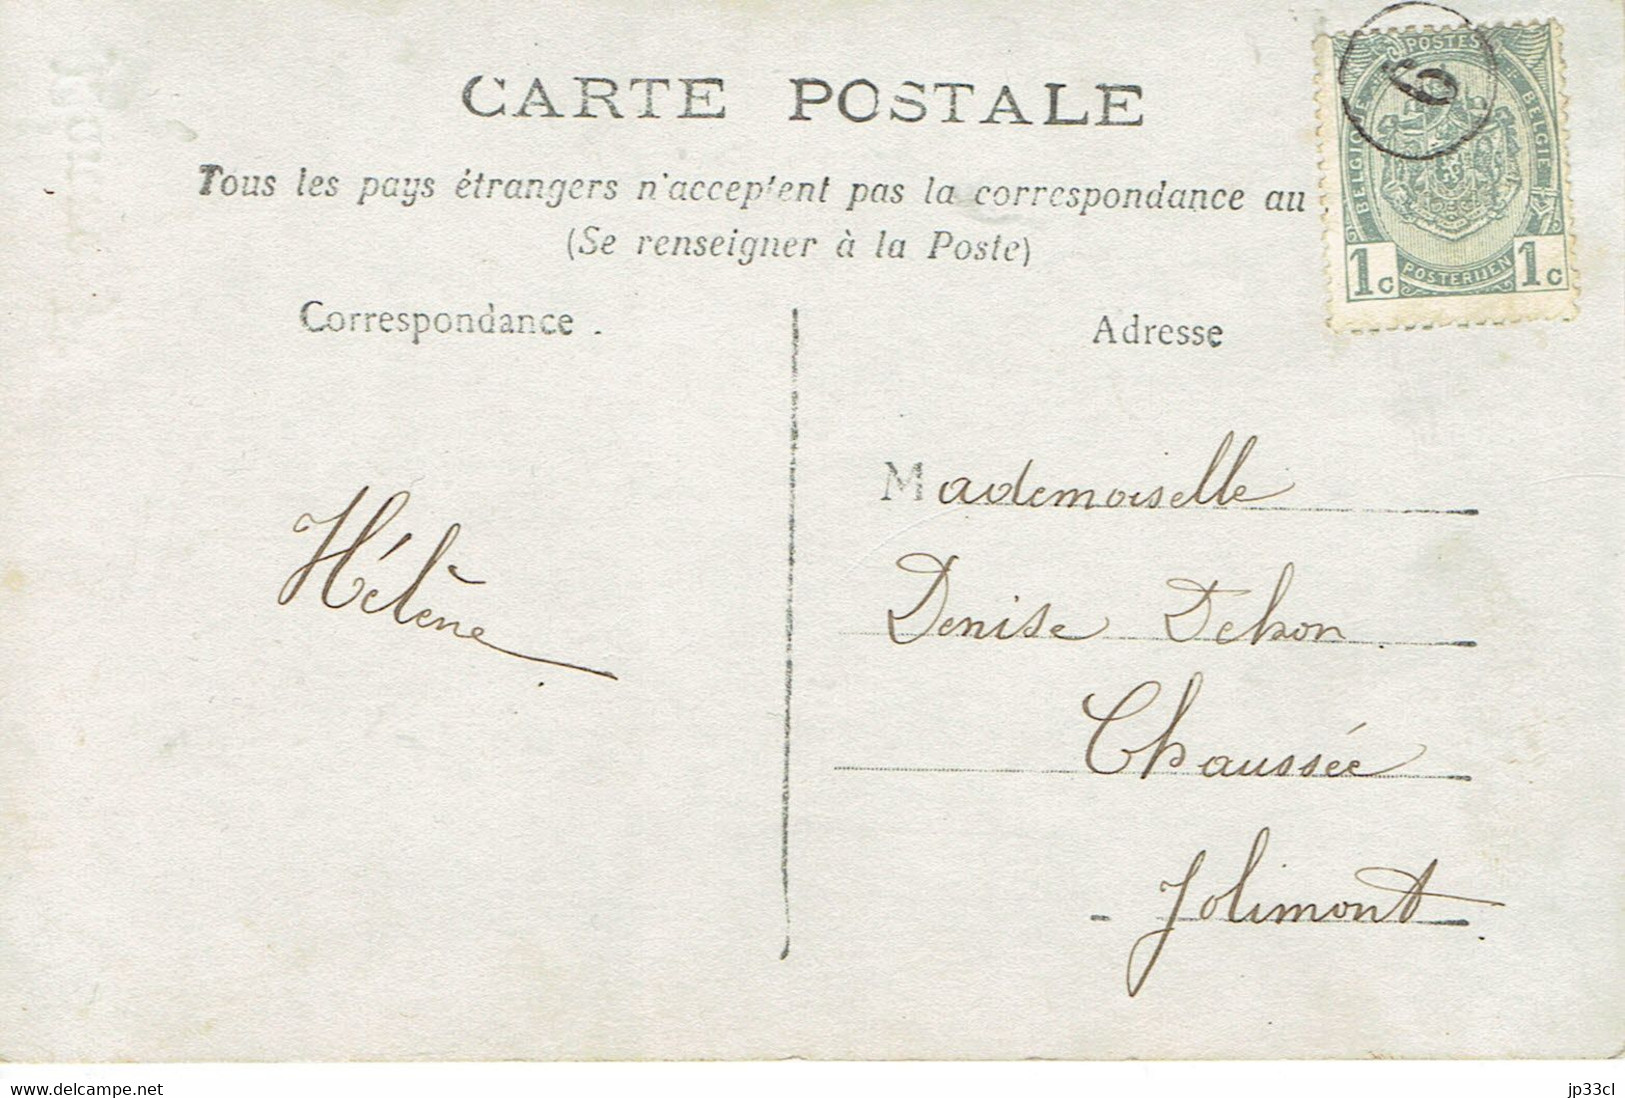 CARTE POSTALE
Tous les pays étrangers n'acceptent pas la correspondance au
(Se renseigner à la Poste)
Correspondance.
Adresse
POSTES
BELGIQUE
BELGIE
POSTERIJEN
1c 1c
6
Mademoiselle
Denise Dehon
Chaussée
Jolimont
Hélène
www.delcampe.net
jp33cl